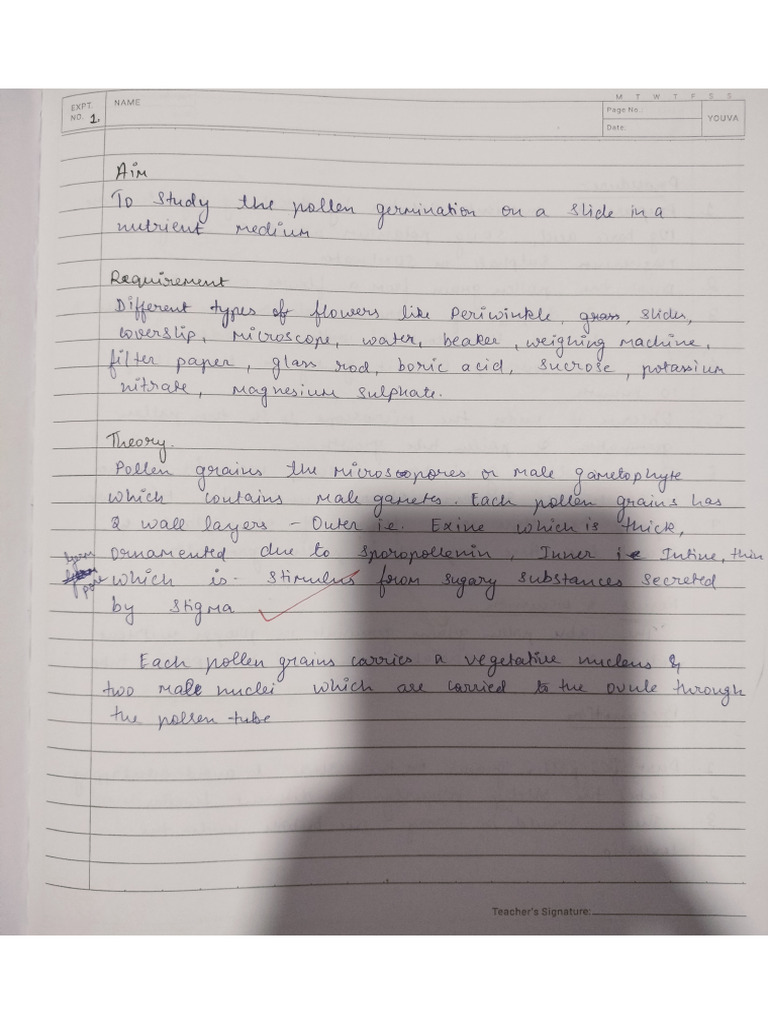 M T W T F S S
EXPT. NO. 1.
NAME
Page No.:
Date:
YOUVA
Aim
To study the pollen germination on a slide in a
nutrient medium
Requirement
Different types of flowers like Periwinkle, grass, slides,
coverslip, microscope, water, beaker, weighing machine,
filter paper, glass rod, boric acid, sucrose, potassium
nitrate, magnesium sulphate.
Theory.
Pollen grains the microspores or male gametophyte
which contains male gametes. Each pollen grains has
2 wall layers - Outer i.e. Exine which is thick,
Ornamented due to sporopollenin, Inner i.e Intine, thin
germ pore which is stimulus from sugary substances secreted
by stigma
Each pollen grains carries a vegetative nucleus &
two male nuclei which are carried to the ovule through
the pollen tube
Teacher's Signature: